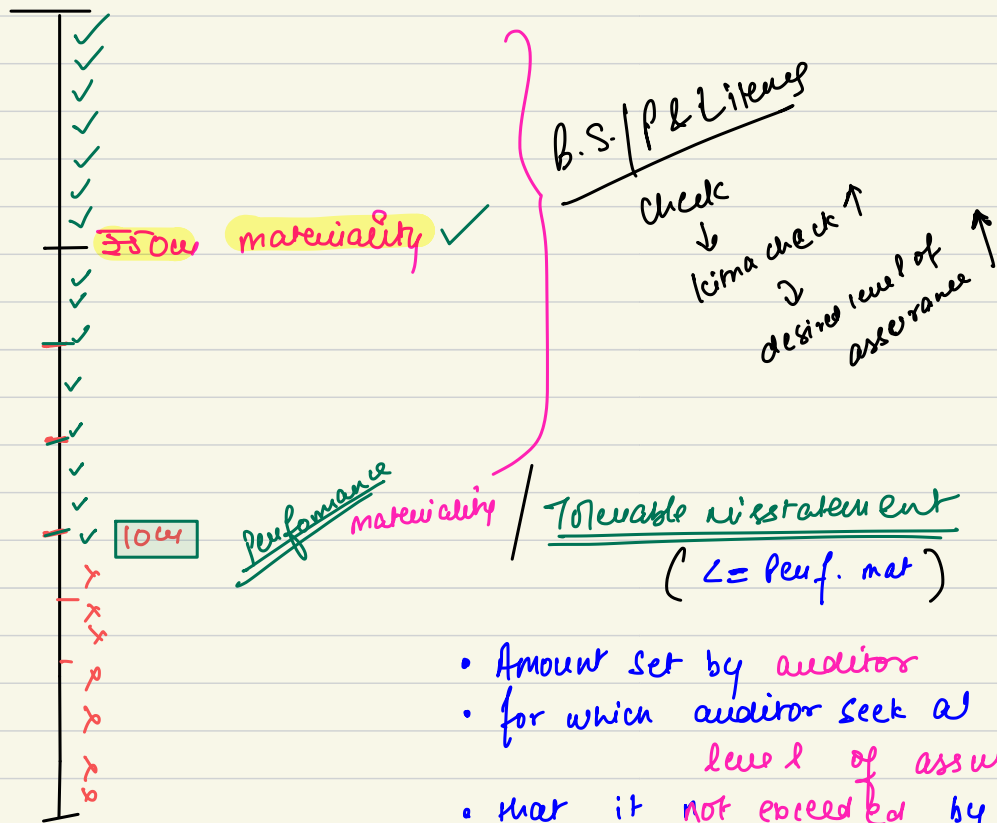 B.S./P&L items
check
↓
kitna check ↑
↓
desired level of assurance ↑
50cr materiality ✓
10cr Performance materiality / Tolerable misstatement
(<= Perf. mat)
• Amount set by auditor
• for which auditor seek a
level of assu
• that it not exceeded by